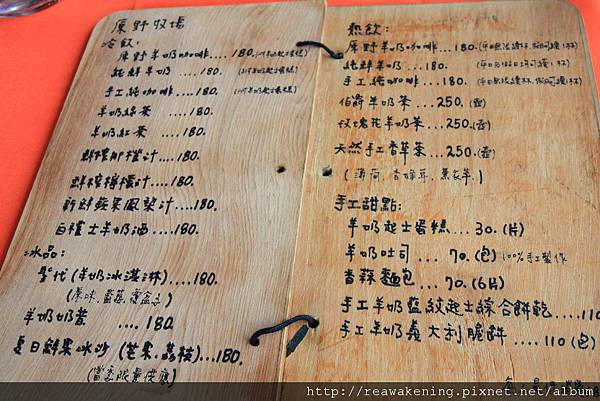 原野牧場
冷飲:
原野羊奶咖啡....180.
純鮮羊奶 ....180.
手工純咖啡....180.
羊奶綠茶 ....180.
羊奶紅茶 ....180.
鮮榨柳橙汁....180.
鮮榨檸檬汁....180.
新鮮蘋果鳳梨汁...180.
白榨土羊奶酒....180.
冰品:
聖代(羊奶冰淇淋)....180.
(原味.藍莓.覆盆子)
羊奶奶昔 ....180.
夏日鮮果冰沙(芒果.荔枝)...180.
(當季限量供應)
熱飲:
原野羊奶咖啡...180.
純鮮羊奶 ...180.
手工純咖啡 ...180.
伯爵羊奶茶...250.(壺)
玫瑰花羊奶茶...250.(壺)
天然手工香草茶...250.(壺)
(薄荷.香蜂草.薰衣草)
手工甜點:
羊奶起士蛋糕...30.(片)
羊奶吐司 ... 70.(包) 100%手工製作
香蒜麵包...70.(6片)
手工羊奶藍紋起士綜合餅乾....110
手工羊奶義大利脆餅 ...110(包)
http://reawakening.pixnet.net/album